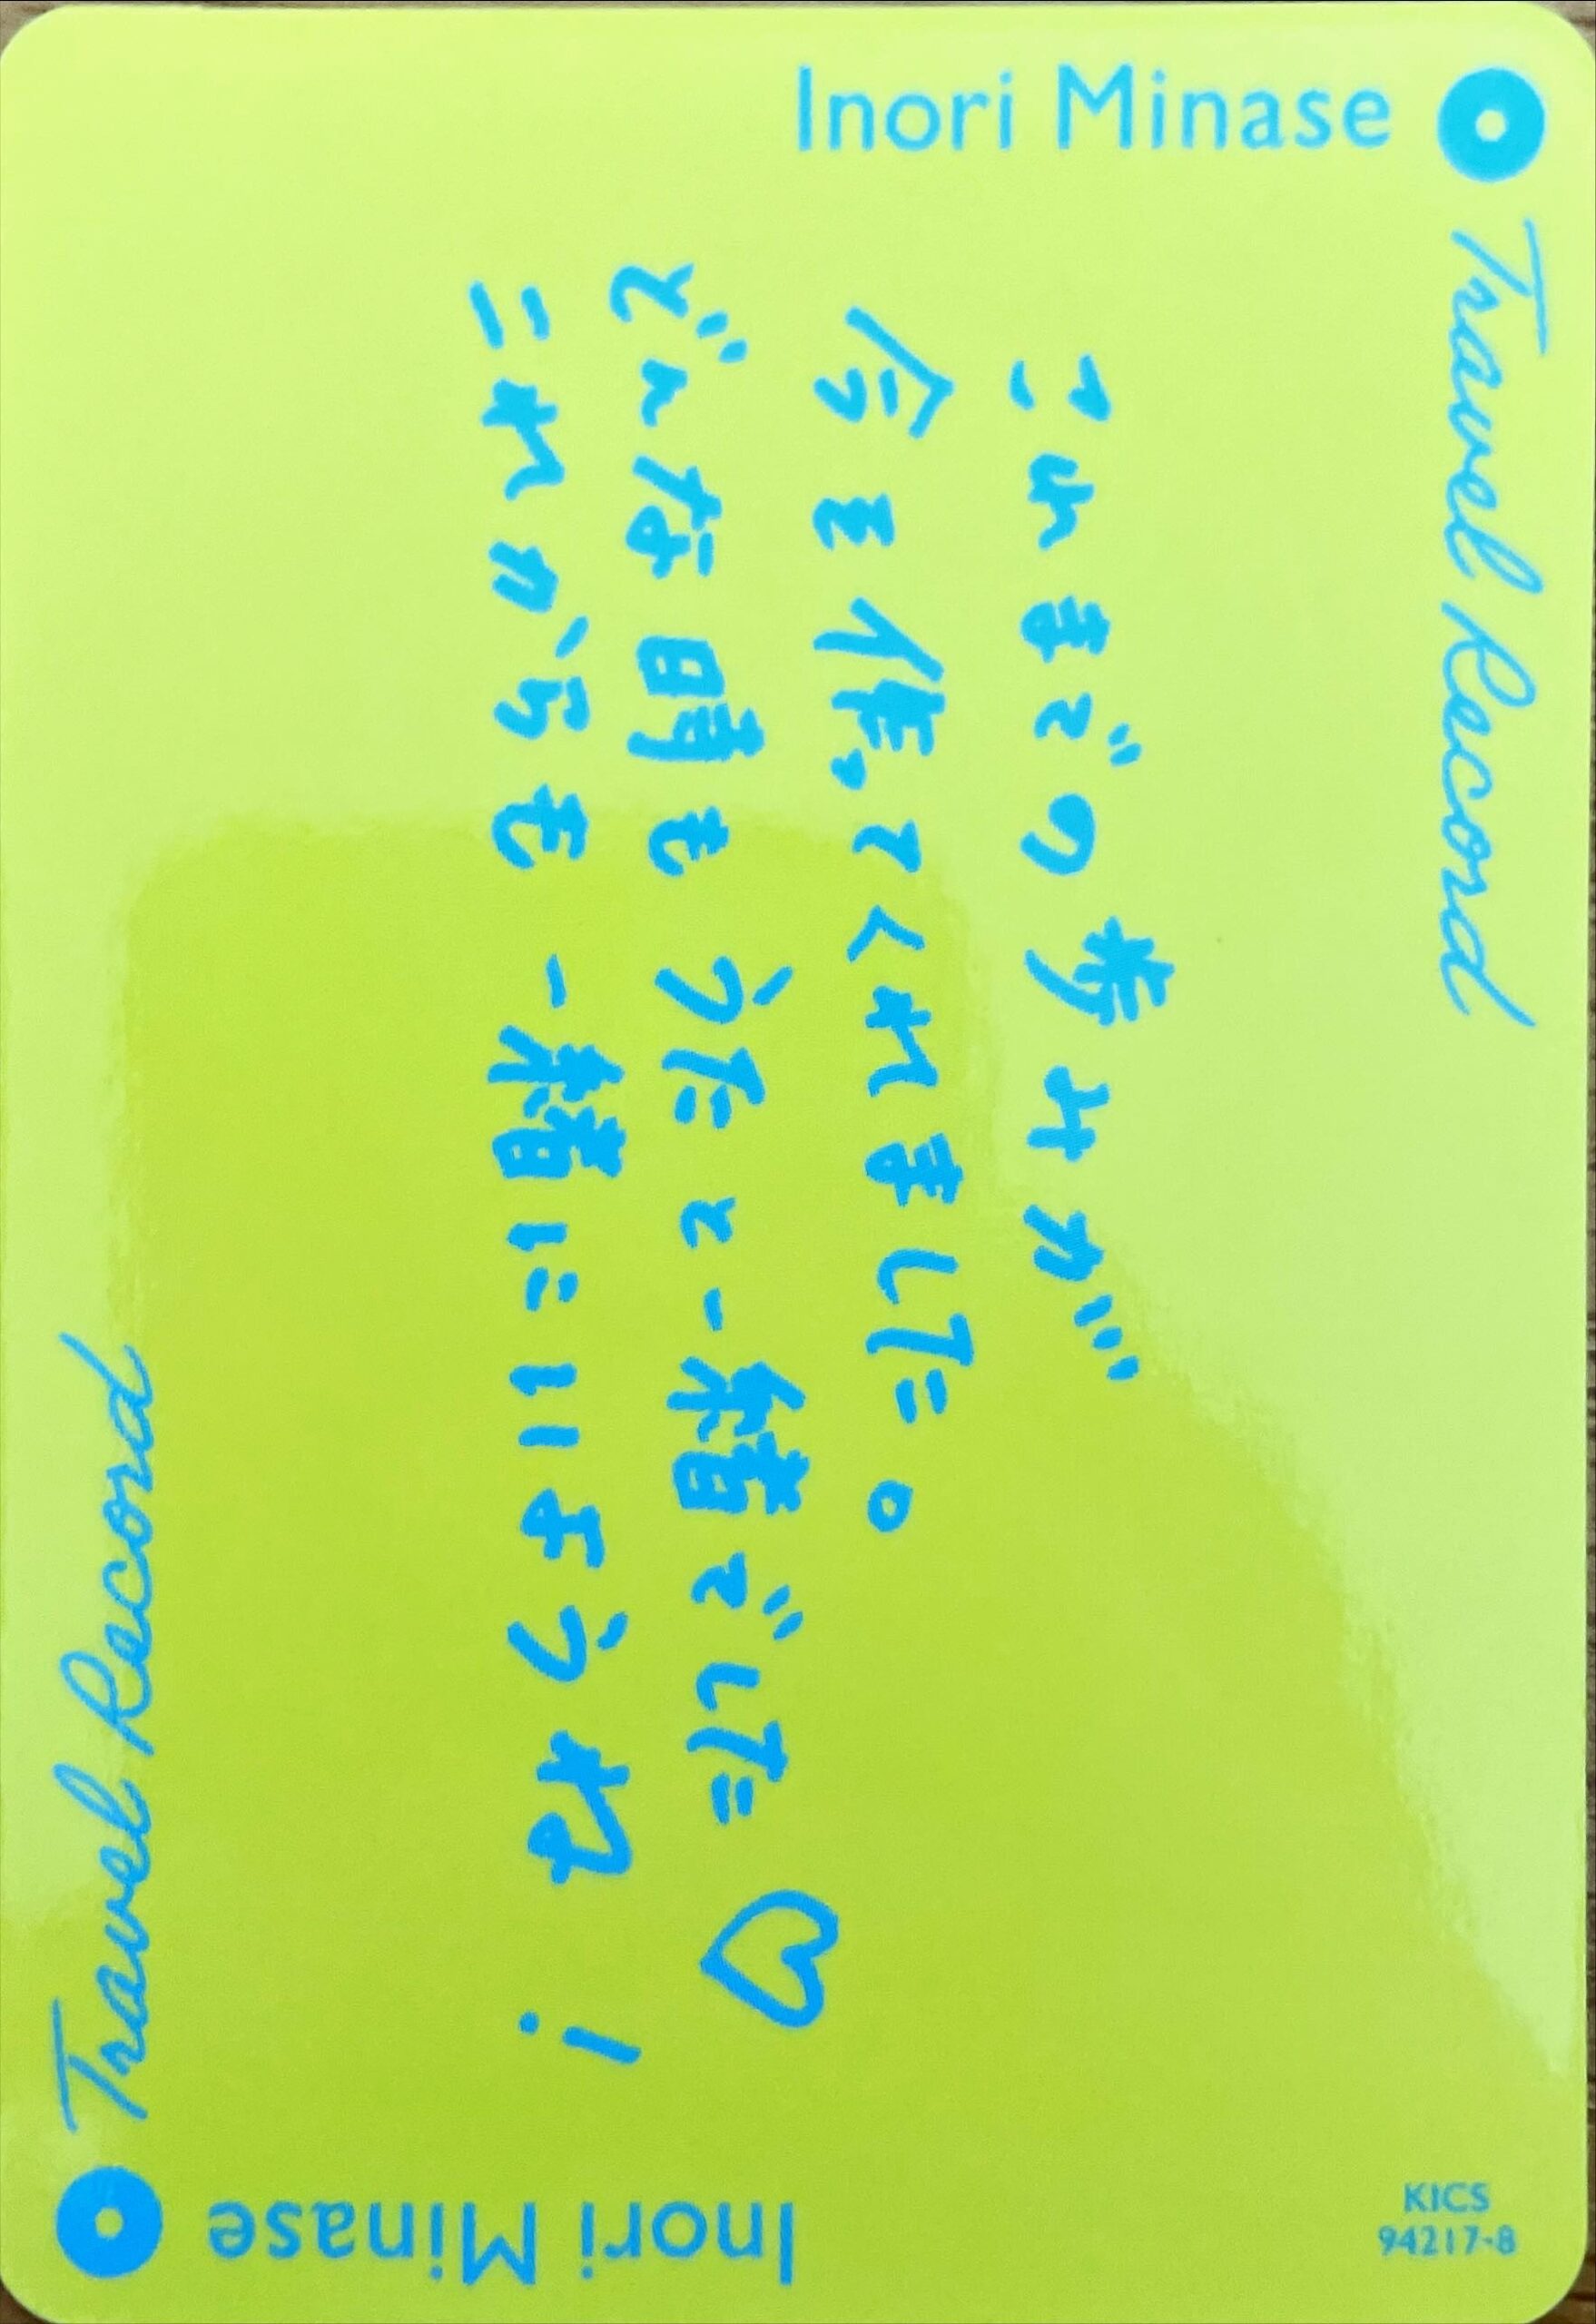 Inori Minase
Travel Record
これまでの歩みが
今を作ってくれました。
どんな時も うたと一緒でした♡
これからも 一緒にいようね!
Travel Record
Inori Minase
KICS
94217-8